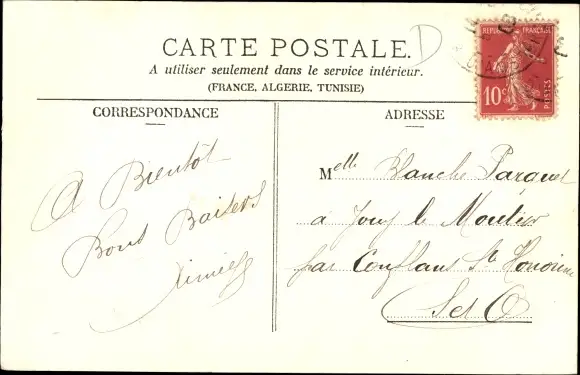 CARTE POSTALE.
D
A utiliser seulement dans le service intérieur.
(FRANCE, ALGERIE, TUNISIE)
REPUBLIQUE FRANÇAISE
10c
POSTES
CORRESPONDANCE
A Bientôt
Bons Baisers
ADRESSE
Melle Blanche Parquet
à Jouy le Moutier
par Conflans Ste Honorine
S et O